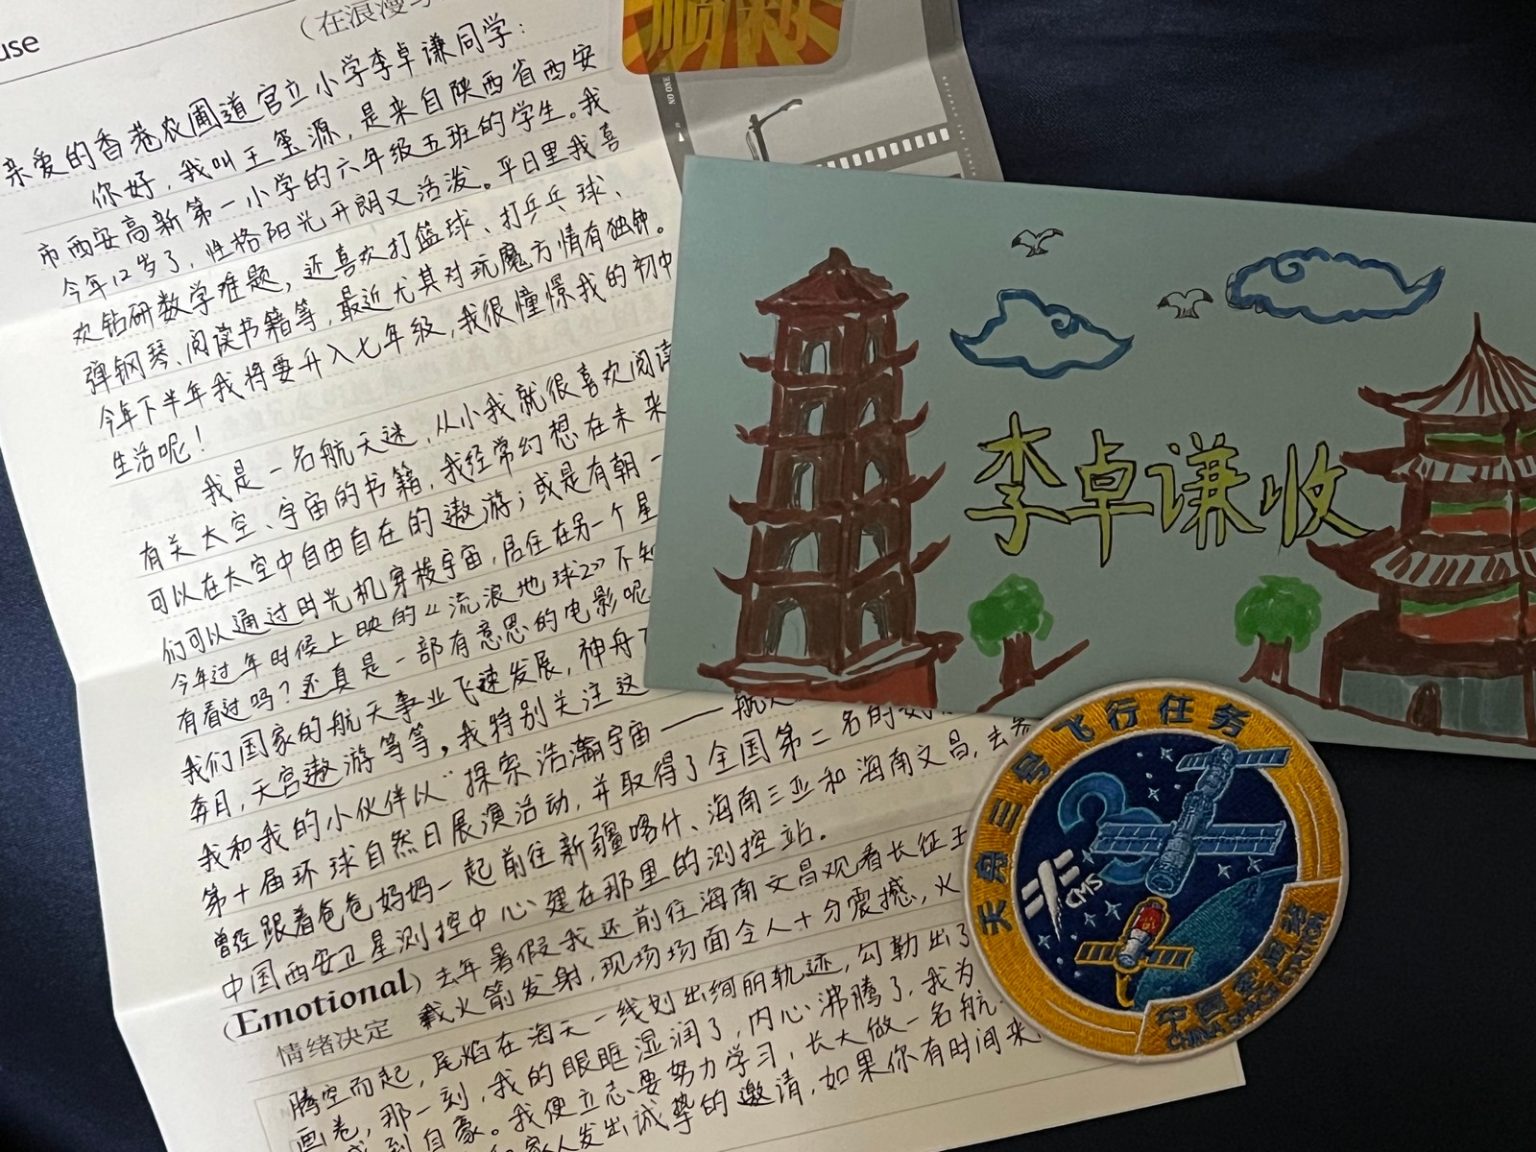 use
（在浪漫
顺利
NO ONE
亲爱的香港农圃道官立小学李卓谦同学：
你好，我叫王玺源，是来自陕西省西安
市西安高新第一小学的六年级五班的学生。我
今年12岁了，性格阳光开朗又活泼。平日里我喜
欢钻研数学难题，还喜欢打篮球、打乒乓球、
弹钢琴、阅读书籍等，最近尤其对玩魔方情有独钟。
今年下半年我将要升入七年级，我很憧憬我的初中
生活呢！
我是一名航天迷，从小我就很喜欢阅读
有关太空、宇宙的书籍，我经常幻想在未来
可以在太空中自由自在的遨游；或是有朝一
们可以通过时光机穿梭宇宙，居住在另一个星
今年过年时候上映的《流浪地球2》不知
有看过吗？还真是一部有意思的电影呢
我们国家的航天事业飞速发展，神舟
奔月，天宫遨游等等，我特别关注这
我和我的小伙伴以“探索浩瀚宇宙——航天
第十届环球自然日展演活动，并取得了全国第二名的好
曾经跟着爸爸妈妈一起前往新疆喀什、海南三亚和海南文昌，去参
中国西安卫星测控中心建在那里的测控站。
(Emotional) 去年暑假我还前往海南文昌观看长征五
情绪决定 载火箭发射，现场场面令人十分震撼，火
腾空而起，尾焰在海天一线划出绚丽轨迹，勾勒出了
画卷，那一刻，我的眼眶湿润了，内心沸腾了，我为
感到自豪。我便立志要努力学习，长大做一名航
家人发出诚挚的邀请，如果你有时间来
李卓谦收
天舟三号飞行任务
CMS
中国空间站
CHINA SPACE STATION